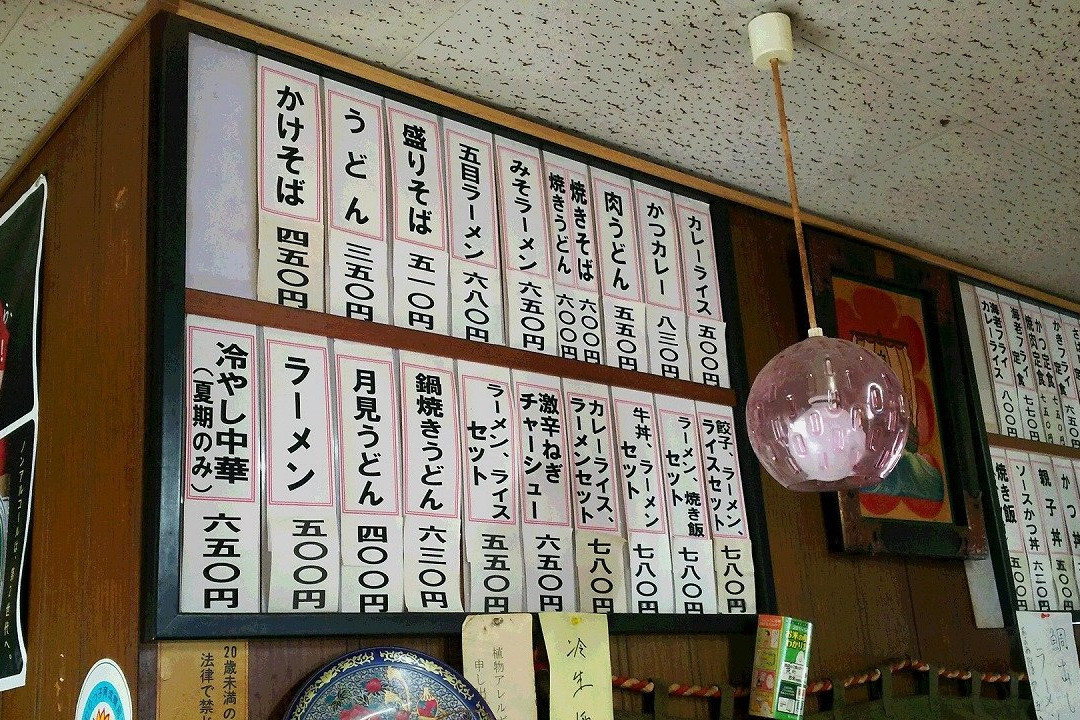 かけそば 四五〇円
うどん 三五〇円
盛りそば 五一〇円
五目ラーメン 六八〇円
みそラーメン 六五〇円
焼きそば 六〇〇円
焼きうどん 六〇〇円
肉うどん 五五〇円
かつカレー 八三〇円
カレーライス 五〇〇円
冷やし中華
(夏期のみ) 六五〇円
ラーメン 五〇〇円
月見うどん 四〇〇円
鍋焼きうどん 六三〇円
ラーメン、ライス
セット 五五〇円
激辛ねぎ
チャーシュー 六五〇円
カレーライス、
ラーメンセット 七八〇円
牛丼、ラーメン
セット 七八〇円
ラーメン、焼き飯
セット 七八〇円
餃子、ラーメン、
ライスセット 七八〇円
海老フライ
カレーライス 八〇〇円
海老フライ定食
焼肉定食 七七〇円
かつ定食 七五〇円
かきフライ定食 七五〇円
焼き飯 五五〇円
ソースかつ丼 六二〇円
親子丼
かつ丼
20歳未満の
法律で禁
植物アレル
申し出
冷生
ノンアルコールは、第2世代へ。